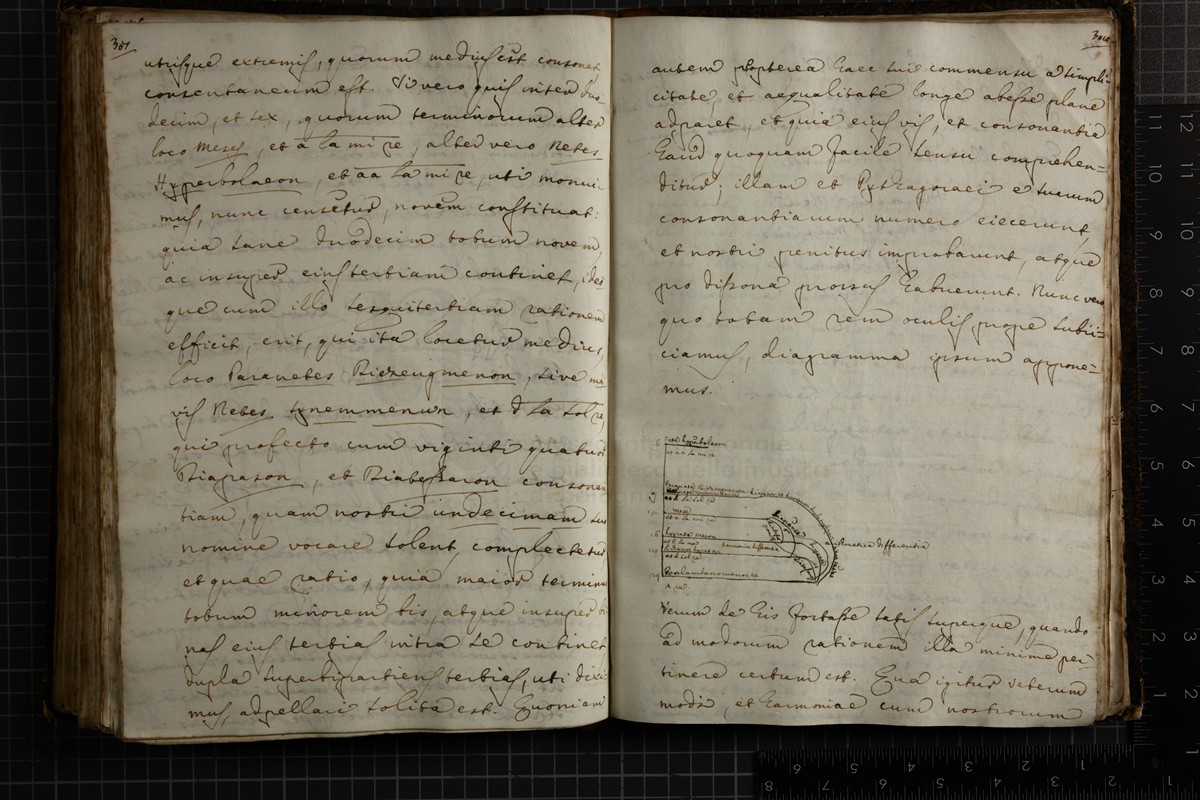 307
utrisque extremis, quorum medius est consonet
consentaneum est. Si vero quis inter duo
decim, et sex, quorum terminorum alter
loco Meses, et a la mi re, alter vero Netes
Hyperbolaeon, et aa la mi re, uti monui
mus, nunc censetur, novem constituat:
quia sane duodecim totum novem,
ac insuper eius tertiam continet, ideo
que cum illo sesquitertiam rationem
efficit, erit, qui ita locetur medius,
loco Paranetes Diezeugmenon, sive ma
vis Netes synemmenon, et d la sol re,
qui profecto cum viginti quatuor
Diapason, et Diatessaron consonan
tiam, quam nostri undecimam suo
nomine vocare solent, complectetur
et quae ratio, quia maior terminus
totum minorem bis, atque insuper bi
nas eius tertias intra se continet
dupla superbipartiens tertias, uti dixi
mus, adpellari solita est. Quoniam
308
autem propterea haec sui commensu a simpli=
citate, et aequalitate longe abesse plane
adparet, et quia eius vis, et consonantia
haud quoquam facile sensu comprehen=
ditur; illam et Pythagoraei e suarum
consonantiarum numero eiecerunt,
et nostri penitus improbarunt, atque
pro dissona prorsus habuerunt. Nunc vero
quo totam rem oculis prope subii=
ciamus, diagramma ipsum appone=
mus.
Nete hyperbolaeon
aa la mi re
d la sol re
mese
a la mi re
hypate meson
harmonica differentia
arithmetica differentia
Proslambanomenos
A re
Verum de his fortasse satis superque, quando
ad modorum rationem illa minime per
tinere certum est. Qua igitur veterum
modi, et harmoniae cum nostrorum